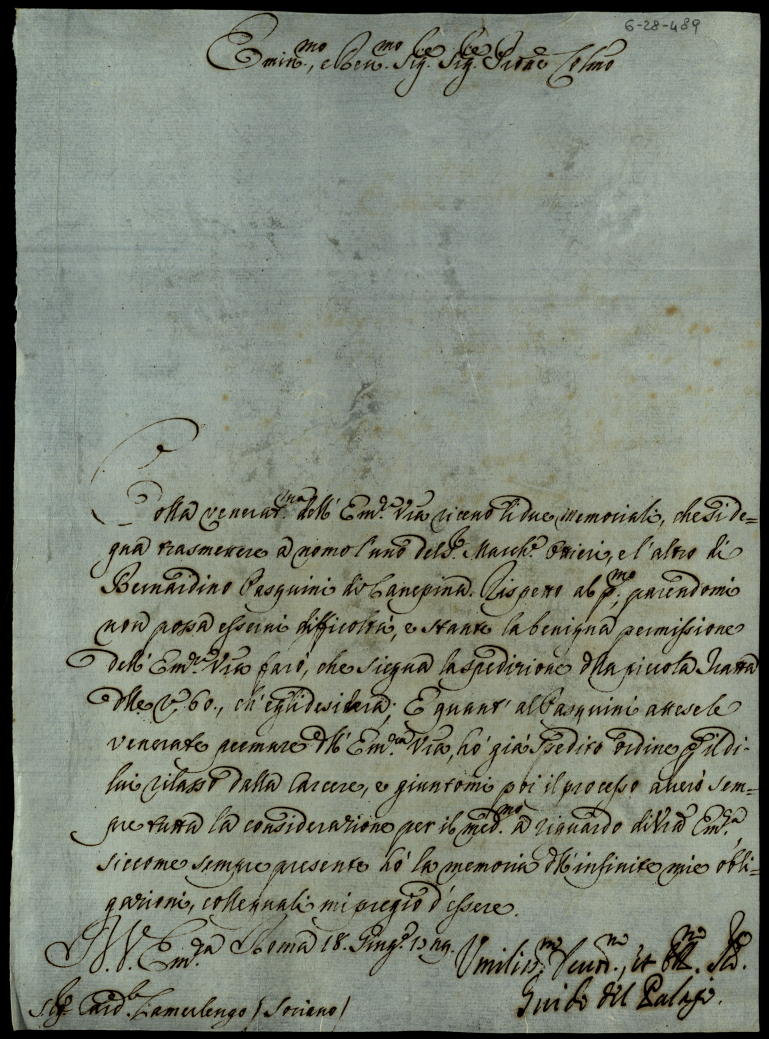 6-28-489
Emin.mo, e Rev.mo Sig.re Sig.re P.rone Col.mo
Colla venerat.ma dell' Em.za V.ra ricevo li due memoriali, che si de=
gna trasmettere a nome l'uno del S.r March.e Ottieri, e l'altro di
Bernardino Pasquini di Canepina. Rispetto al p.mo, parendomi
non possa esservi difficoltà, e stante la benigna permissione
dell' Em.za V.ra farò, che siegua la spedizione della piccola Tratta
delle 60., ch'egli desidera; E quant' al Pasquini attese le
venerate premure dell' Em.za V.ra, hò già spedito ordine p il di-
lui rilasso dalla Carcere, e giuntomi poi il processo averò sem=
pre tutta la considerazione per il med.mo a riguardo di V.ra Em.za,
siccome sempre presente hò la memoria dell'infinite mie obli=
gazioni, colle quali mi pregio d'essere.
D. V. Em.za Roma 18. Giug.o
Umiliss.mo Devot.mo, et Obl.mo
Sig. Card.le Camerlengo / Soriano /
Guido del Palagio.